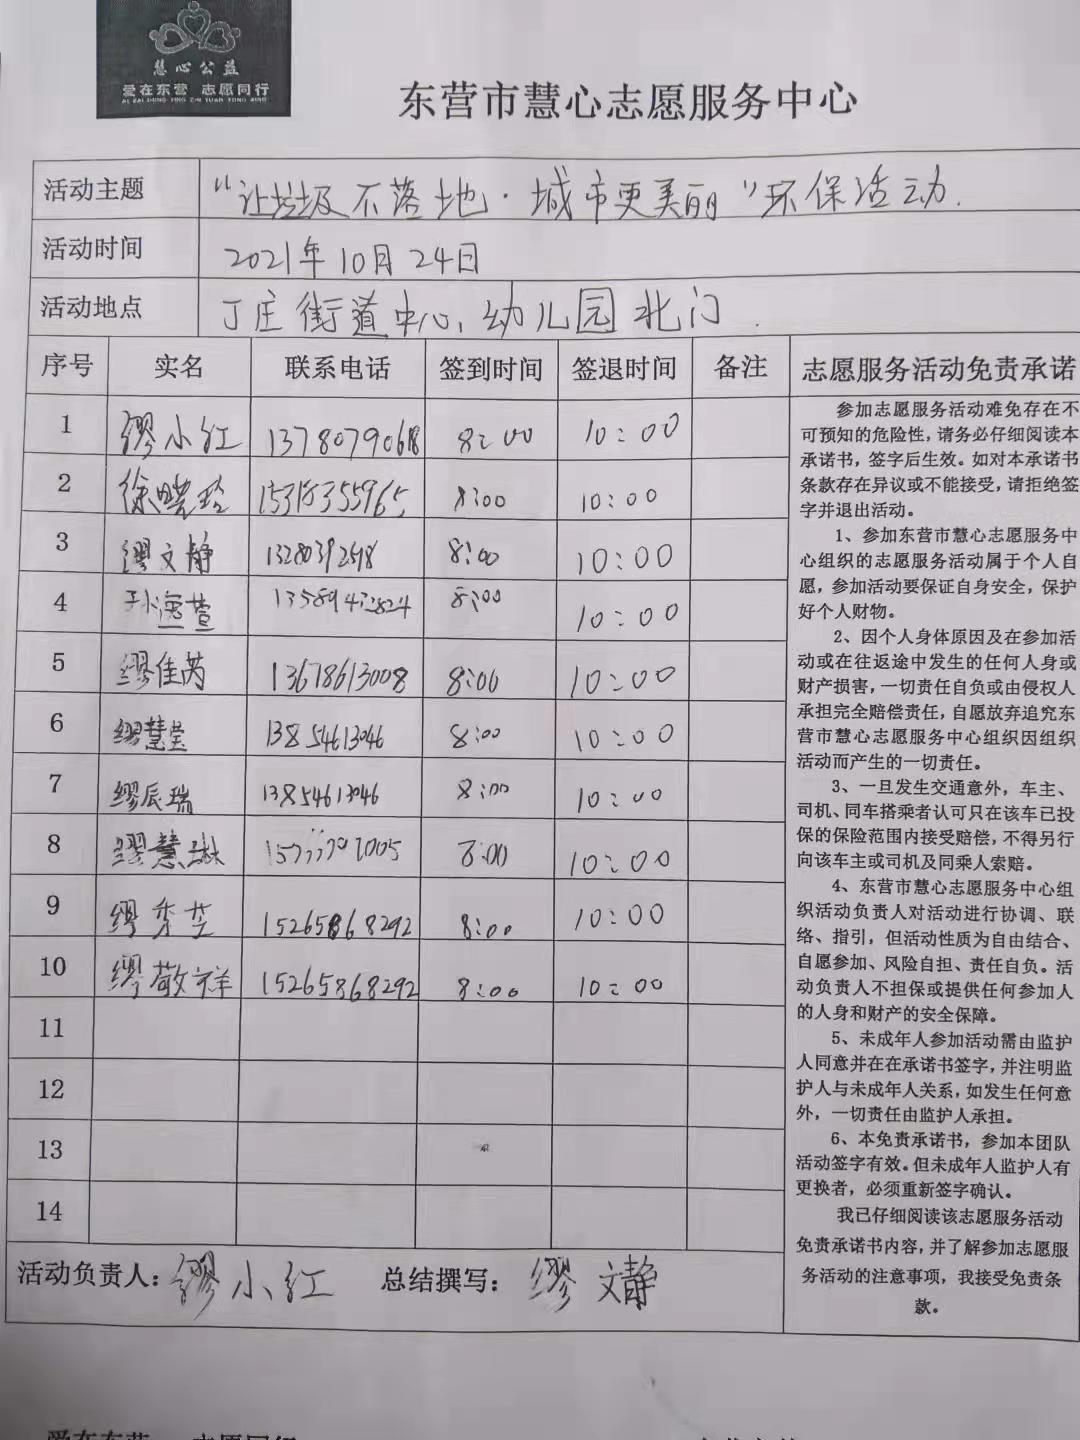 慧心公益
爱在东营 志愿同行
AI ZAI DONG YING ZHI YUAN TONG XING
东营市慧心志愿服务中心
活动主题 “让垃圾不落地·城市更美丽”环保活动.
活动时间 2021年10月24日
活动地点 丁庄街道中心幼儿园北门.
序号 实名 联系电话 签到时间 签退时间 备注 志愿服务活动免责承诺
1 缪小红 13780790618 8:00 10:00
2 徐晓玲 15315355965 8:00 10:00
3 缪文静 8:00 10:00
4 孙海萱 8:00 10:00
5 缪佳芮 13678613008 8:00 10:00
6 缪慧莹 13854613046 8:00 10:00
7 缪辰瑞 13854613046 8:00 10:00
8 缪慧琳 8:00 10:00
9 缪 15265868292 8:00 10:00
10 缪敬祥 15265868292 8:00 10:00
11
12
13
14
参加志愿服务活动难免存在不
可预知的危险性，请务必仔细阅读本
承诺书，签字后生效。如对本承诺书
条款存在异议或不能接受，请拒绝签
字并退出活动。
1、参加东营市慧心志愿服务中
心组织的志愿服务活动属于个人自
愿，参加活动要保证自身安全，保护
好个人财物。
2、因个人身体原因及在参加活
动或在往返途中发生的任何人身或
财产损害，一切责任自负或由侵权人
承担完全赔偿责任，自愿放弃追究东
营市慧心志愿服务中心组织因组织
活动而产生的一切责任。
3、一旦发生交通意外，车主、
司机、同车搭乘者认可只在该车已投
保的保险范围内接受赔偿，不得另行
向该车主或司机及同乘人索赔。
4、东营市慧心志愿服务中心组
织活动负责人对活动进行协调、联
络、指引，但活动性质为自由结合、
自愿参加、风险自担、责任自负。活
动负责人不担保或提供任何参加人
的人身和财产的安全保障。
5、未成年人参加活动需由监护
人同意并在在承诺书签字，并注明监
护人与未成年人关系，如发生任何意
外，一切责任由监护人承担。
6、本免责承诺书，参加本团队
活动签字有效。但未成年人监护人有
更换者，必须重新签字确认。
我已仔细阅读该志愿服务活动
免责承诺书内容，并了解参加志愿服
务活动的注意事项，我接受免责条
款。
活动负责人：缪小红 总结撰写：缪文静